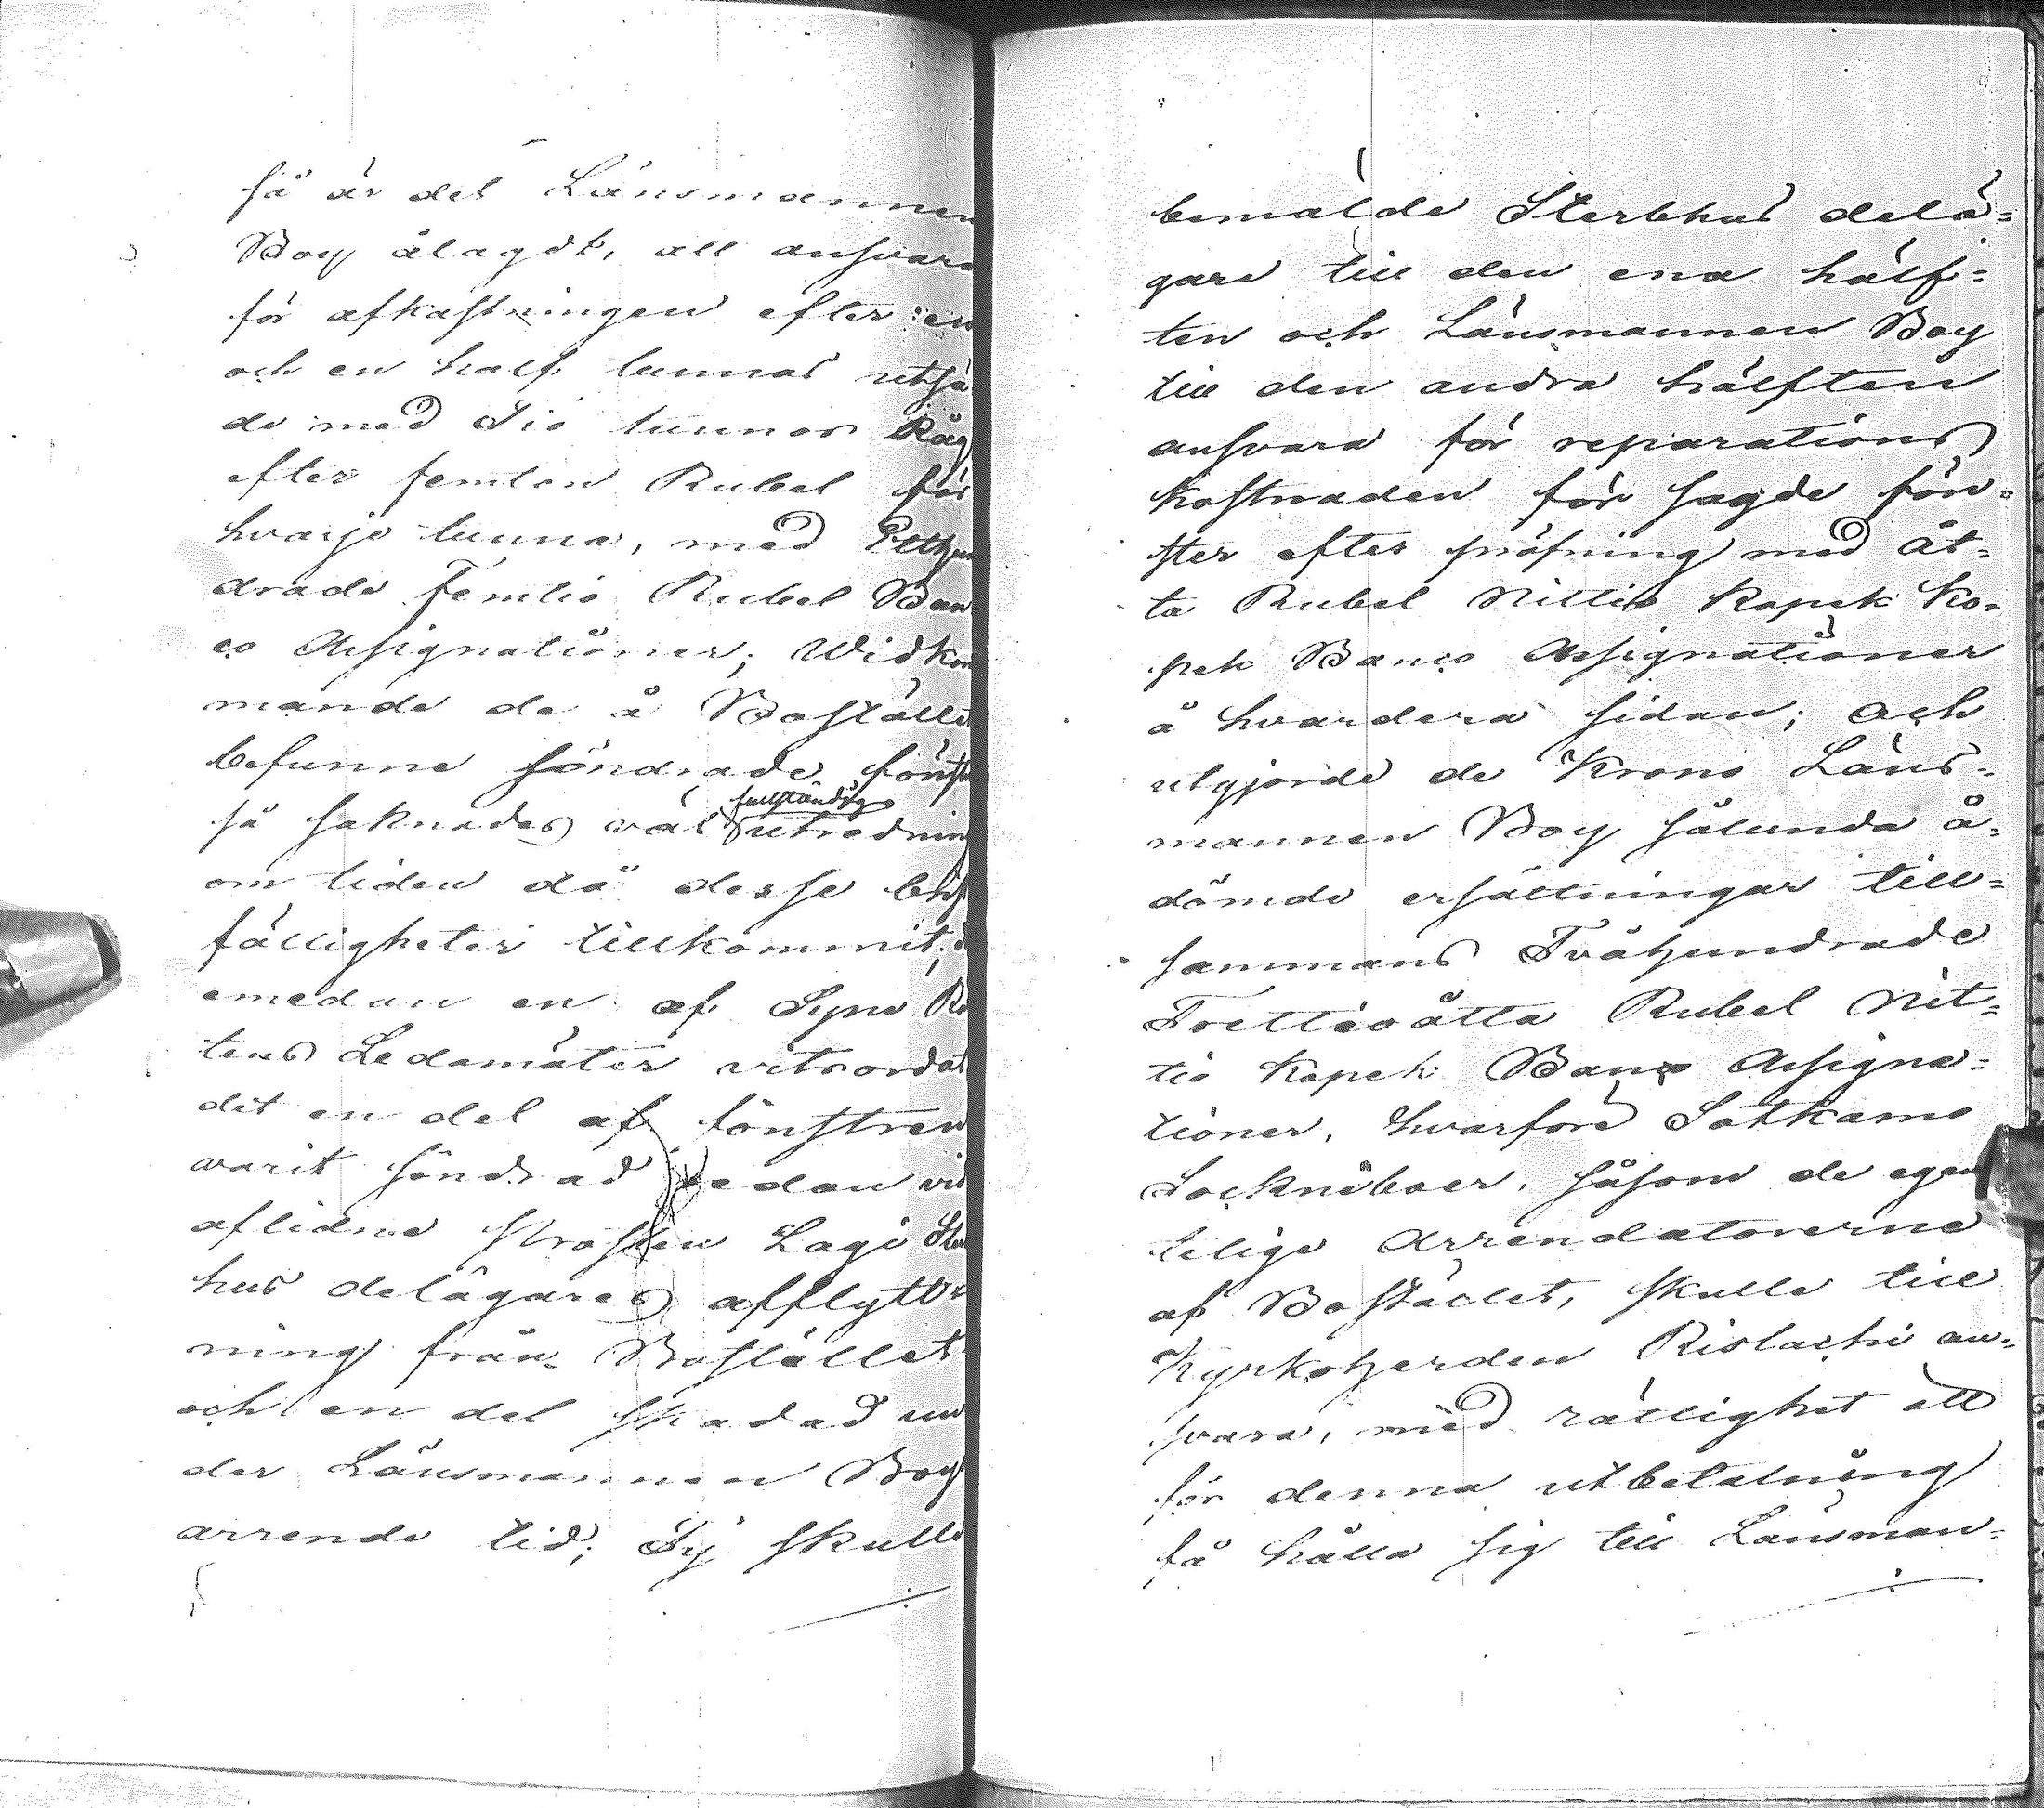 så är det Länsmannen
Boy ålagdt, att ansvara
för afkastningen efter en
och en half tunnas utsä
de med Tio tunnor Råg
efter femton Rubel för
hvarje tunna, med Etthun
drade Femtio Rubel Ban
co Assignationer; Widkom
mande de å Bostället
befunne söndrade fönster
så saknades väl fullständig utredning
om tiden då desse
fälligheter tillkommit,
emedan en af Syne Rä
tens Ledamöter vitsordat
det en del af fönstren
varit söndrad redan vid
aflidne Prosten Lagi Sterb
hus delägares afflytt
ning från Bostället
och en del skadad un
der Länsmannen Boy
arrende tid; Ty skulle
bemälde Sterbhus delä=
gare till den ena hälf=
ten och Länsmannen Boy
till den andra hälften
ansvara för reparations
kostnaden för sagde fön=
ster efter pröfning med åt=
ta Rubel Nittio kopek Ko=
pek Banco Assignationer
å hvardera sidan; och
utgjorde de Krono Läns=
mannen Boy sålunda å=
dömde ersättningar till=
sammans Tvåhundrade
Trettioåtta Rubel Nit=
tio kopek Banco Assigna=
tioner, hvarföre Sotkamo
Sockneboer, såsom de egen
telige Arrendatorerne
af Bostället, skulle till
Kyrkoherden Rislachi an=
svara, med rättighet att
för denna utbetalning
få hålla sig till Länsman=